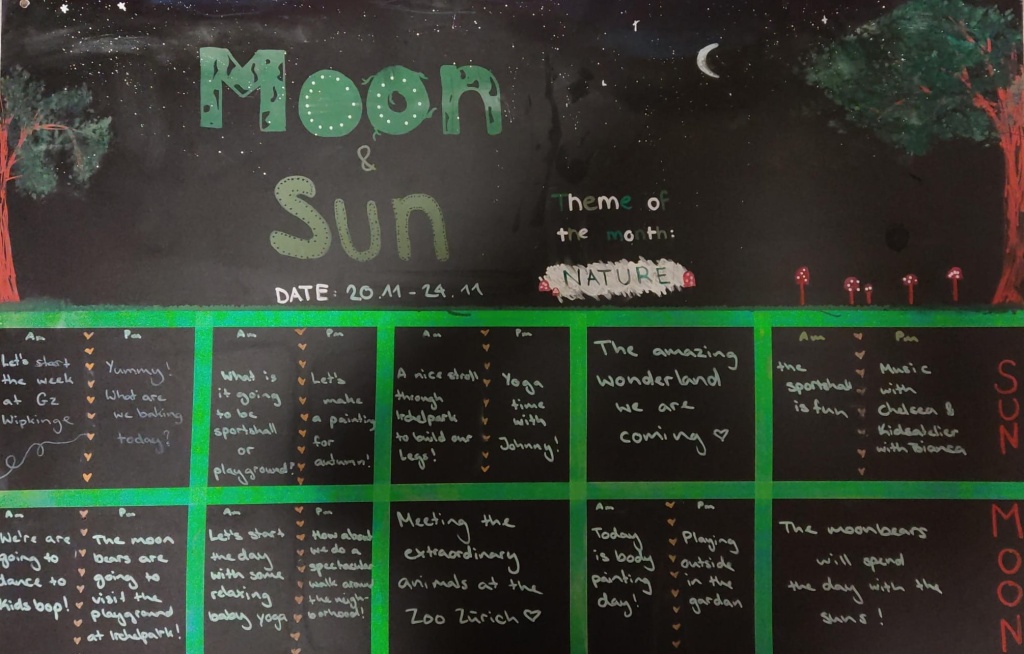 Moon
&
Sun
Theme of
the month:
NATURE
DATE: 20.11 - 24.11
Am
Pm
Let's start
the week
at Gz
Wipkinge
Yummy!
What are
we baking
today?
Am
Pm
What is
it going
to be
sportshall
or
playground?
Let's
make
a painting
for
autumn!
Am
Pm
A nice stroll
through
Irchelpark
to build our
Legs!
Yoga
time
with
Johnny!
The amazing
wonderland
we are
coming ♡
Am
Pm
the
sportshall
is fun
Music
with
Chelsea &
Kidsatelier
with Bianca
SUN
Am
Pm
We're are
going to
dance to
Kids bop!
The moon
bears are
going to
visit the
playground
at Irchelpark!
Am
Pm
Let's start
the day
with some
relaxing
baby yoga
How about
we do a
spectacular
walk around
the neigh-
borhood!
Meeting the
extraordinary
animals at the
Zoo Zürich ♡
Am
Pm
Today
is body
painting
day!
Playing
outside
in the
gardan
The moonbears
will spend
the day with the
suns!
MOON